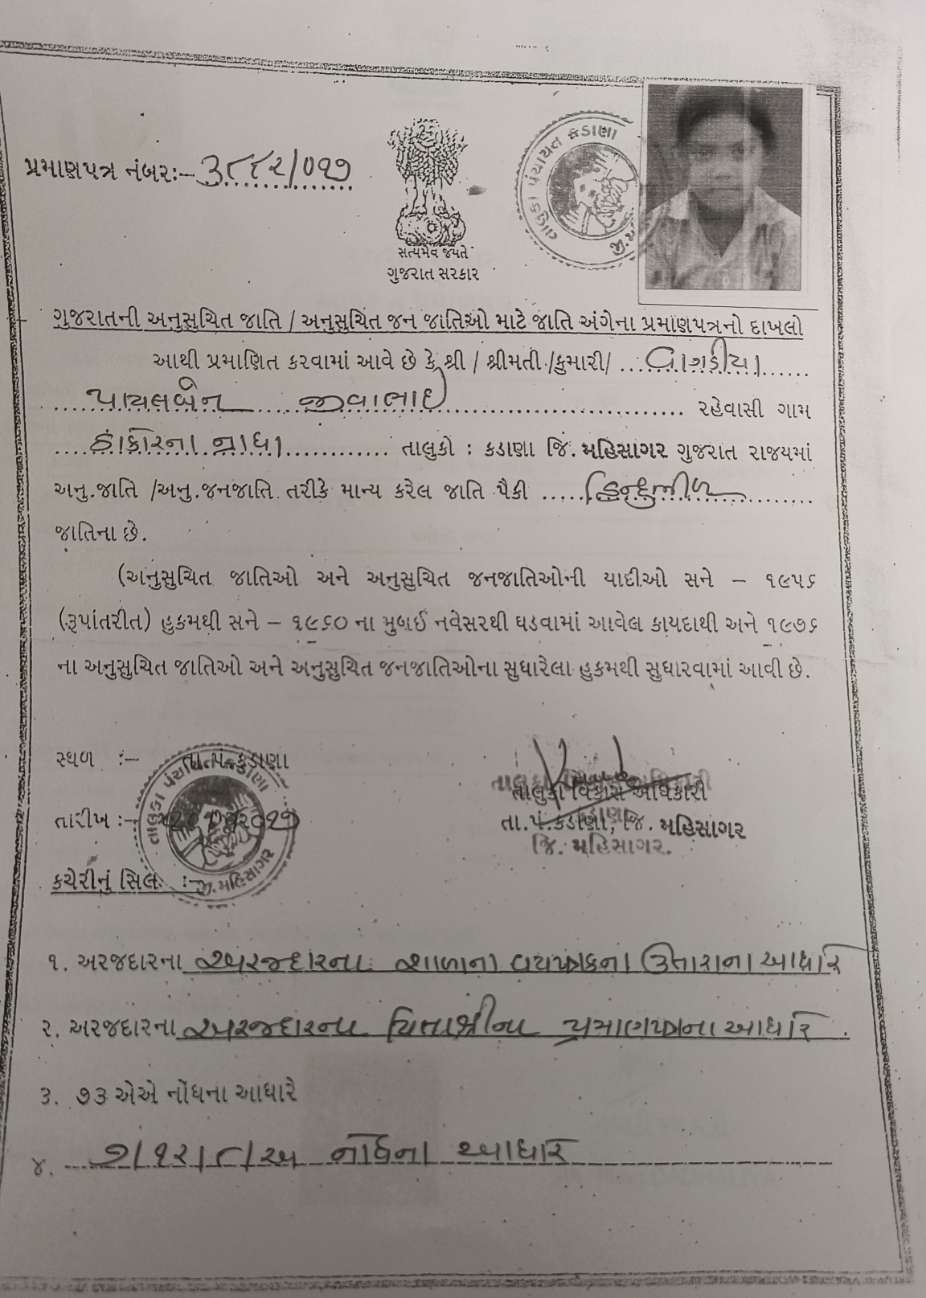 તાલુકા પંચાયત કડાણા
પ્રમાણપત્ર નંબરઃ-
સત્યમેવ જયતે
ગુજરાત સરકાર
ગુજરાતની અનુસુચિત જાતિ / અનુસુચિત જન જાતિઓ માટે જાતિ અંગેના પ્રમાણપત્રનો દાખલો
આથી પ્રમાણિત કરવામાં આવે છે કે શ્રી / શ્રીમતી /કુમારી/ ... વાગડીયા ......
.... પાયલબેન .... જીવાભાઈ ................................ રહેવાસી ગામ
.... ............... તાલુકો : કડાણા જિ. મહિસાગર ગુજરાત રાજયમાં
અનુ.જાતિ /અનુ.જનજાતિ તરીકે માન્ય કરેલ જાતિ પૈકી ..... હિન્દુભીલ ..........
જાતિના છે.
(અનુસુચિત જાતિઓ અને અનુસુચિત જનજાતિઓની યાદીઓ સને – ૧૯૫૬
(રૂપાંતરીત) હુકમથી સને – ૧૯૬૦ ના મુબઈ નવેસરથી ઘડવામાં આવેલ કાયદાથી અને ૧૯૭૬
ના અનુસુચિત જાતિઓ અને અનુસુચિત જનજાતિઓના સુધારેલા હુકમથી સુધારવામાં આવી છે.
સ્થળ :– તા.પં.કડાણા
તાલુકા વિકાસ અધિકારી
તારીખ :–
તા.પં.કડાણા, જિ. મહિસાગર
જિ. મહિસાગર.
કચેરીનું સિલ :–
તાલુકા પંચાયત કડાણા
જી. મહિસાગર
૧. અરજદારના અરજદારના શાળાના વયપત્રકના ઉતારાના આધારે
૨. અરજદારના અરજદારના પિતાશ્રીના પ્રમાણપત્રના આધારે .
૩. ૭૩ એએ નોંધના આધારે
૪. નોંધના આધારે